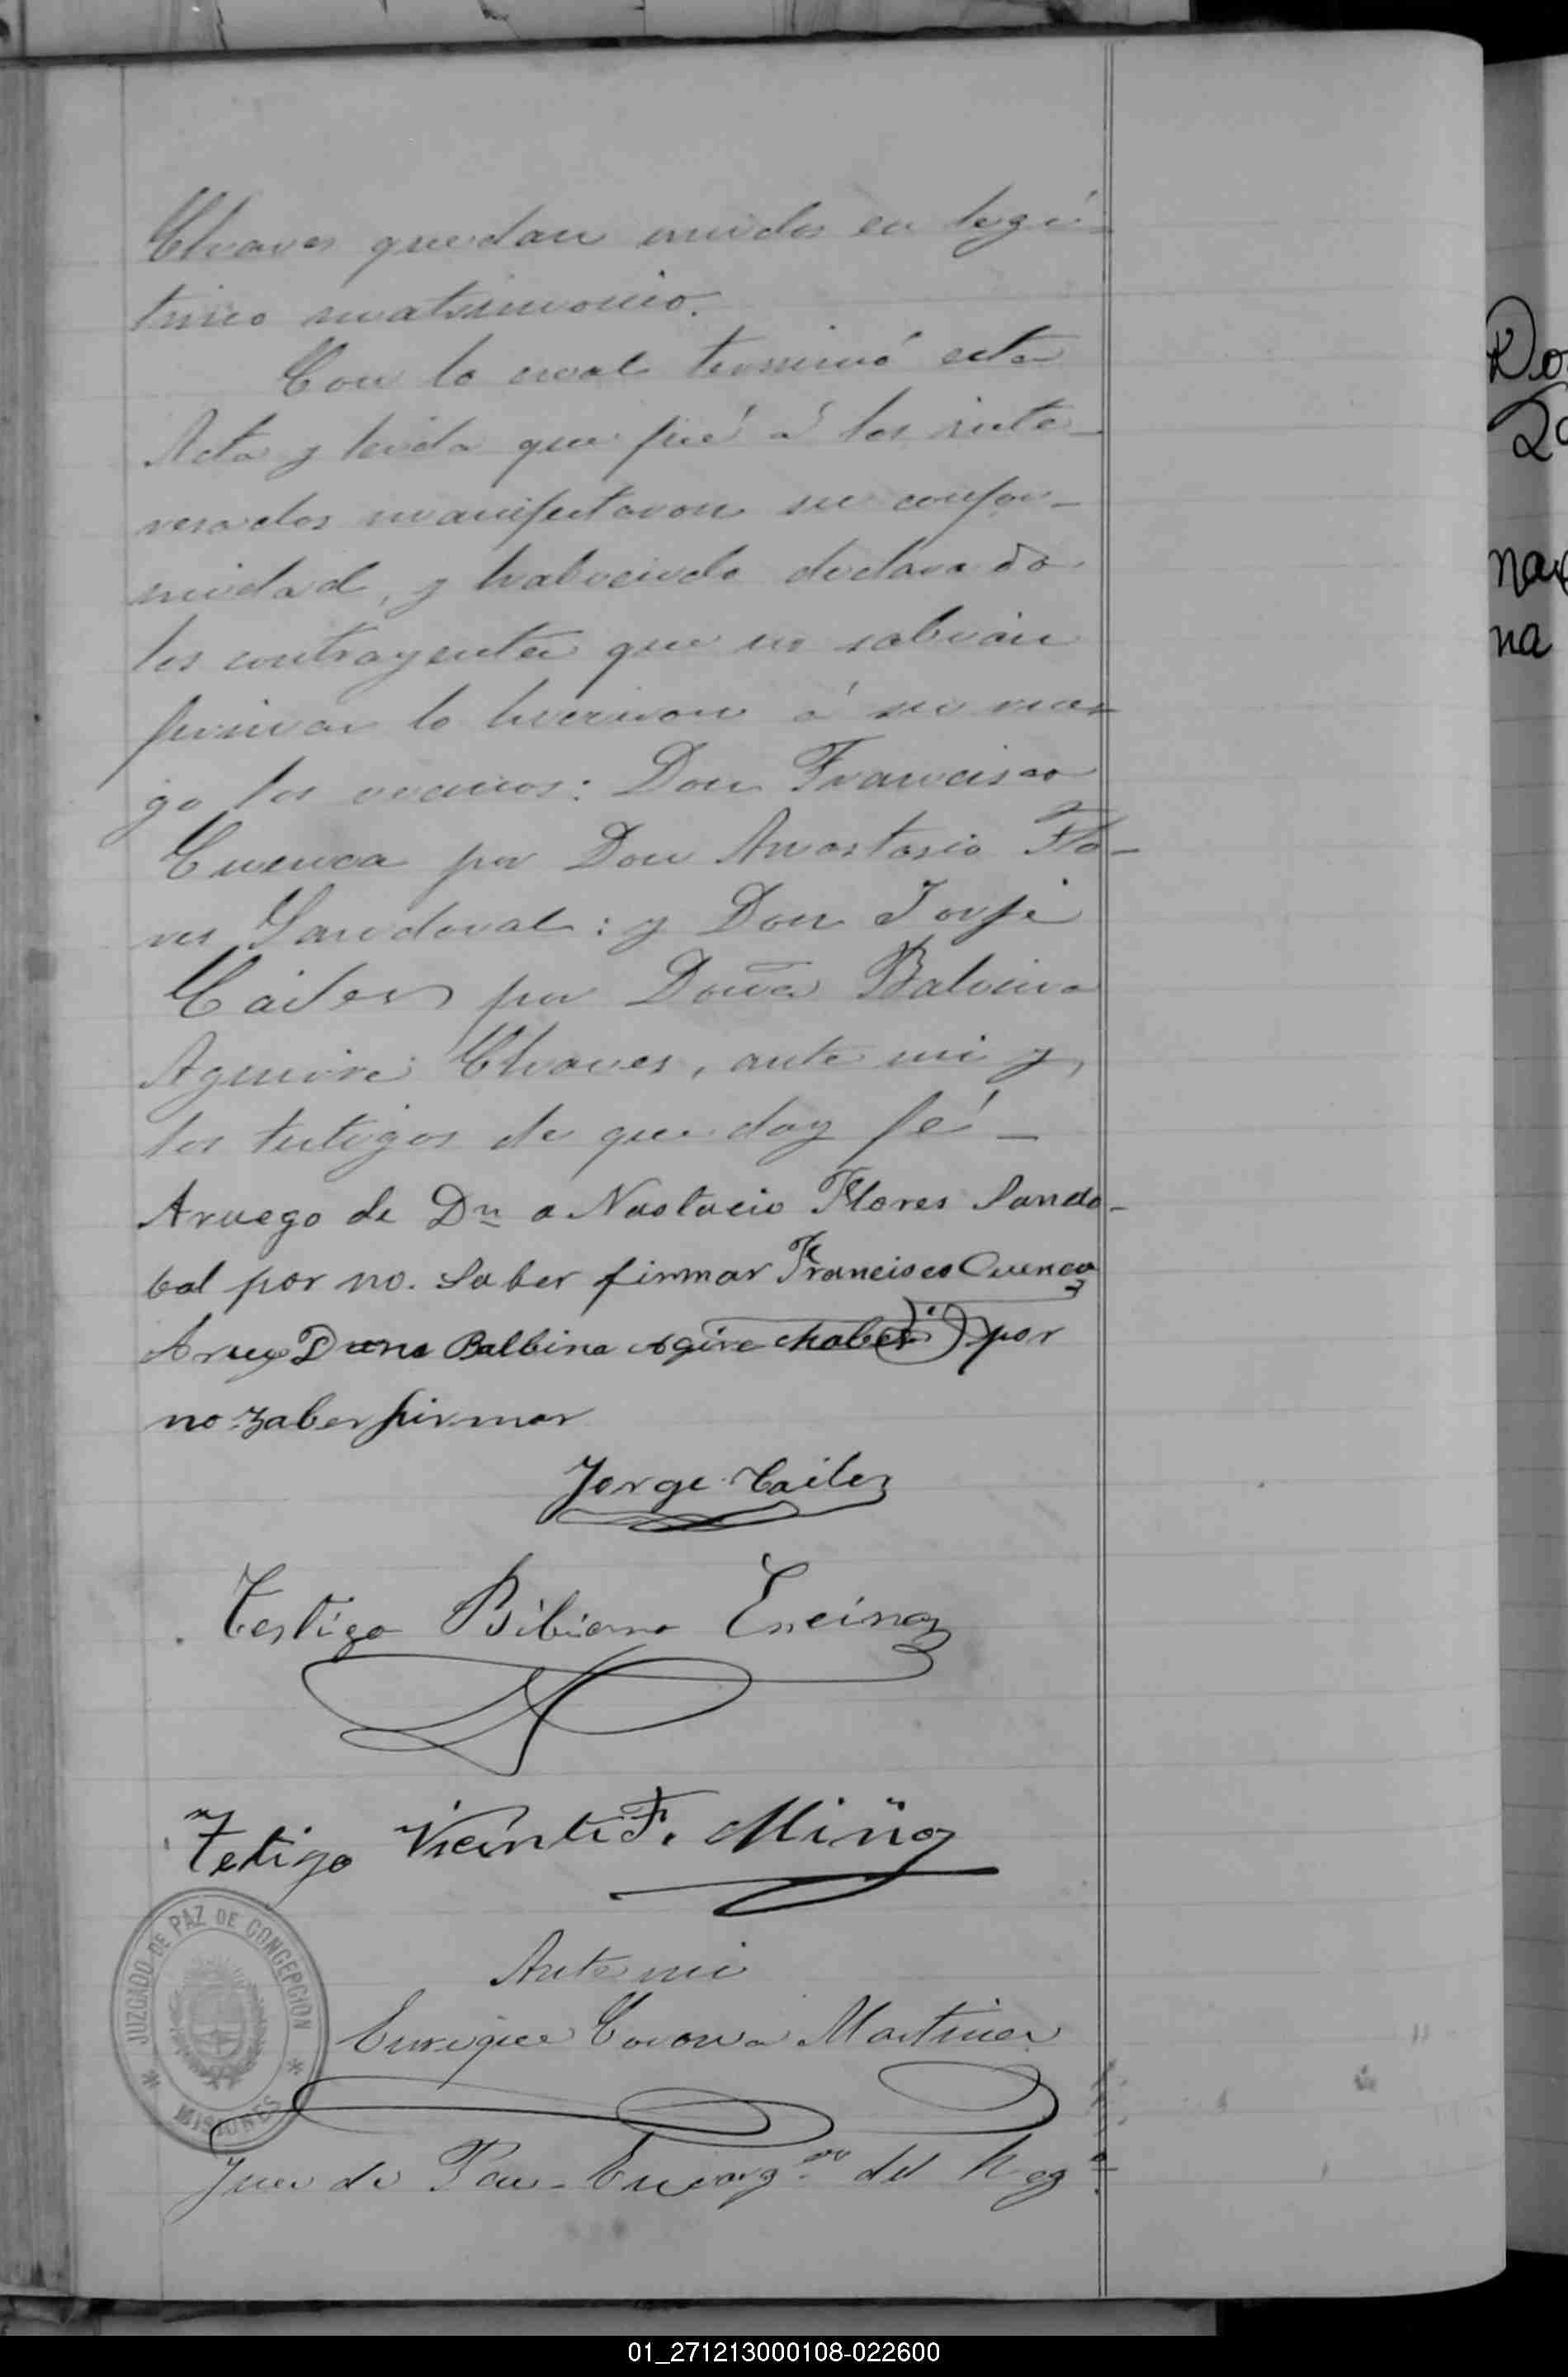 Chaves quedan unidos en legí-
timo matrimonio.
Con lo cual terminó esta
Acta y leida que fué á los inte-
resados manifestaron su confor-
midad, y habiendo declarado
los contrayentes que no sabian
firmar lo hicieron á su rue-
go los vecinos: Don Francisco
Cuenca por Don Anastasio Flo-
res Sandoval: y Don Jorje
Cailes por Doña Balvina
Aguirre Chaves, ante mi y
los testigos de que doy fé —
Aruego de Dn a Nastacio Flores Sando-
bal por no. Saber firmar Francisco Cuenca
Arueg Dona Balbina Agire chabes por
no zaber firmar
Jorge Cailes
Testigo Bibiano Encina
Tetigo Vicente F. Miño
Ante mi
Enrique Corona Martinez
Juez de Paz - Encargdo del Rego
JUZGADO DE PAZ DE CONCEPCION
* MISIONES *
Do
na
01_271213000108-022600